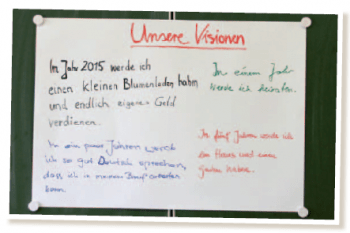 Unsere Visionen
Im Jahr 2015 werde ich
einen kleinen Blumenladen haben
und endlich eigenes Geld
verdienen.
In einem Jahr
werde ich heiraten.
In ein paar Jahren werde
ich so gut Deutsch sprechen,
dass ich in meinem Beruf arbeiten
kann.
In fünf Jahren werde ich
ein Haus und einen
Garten haben.